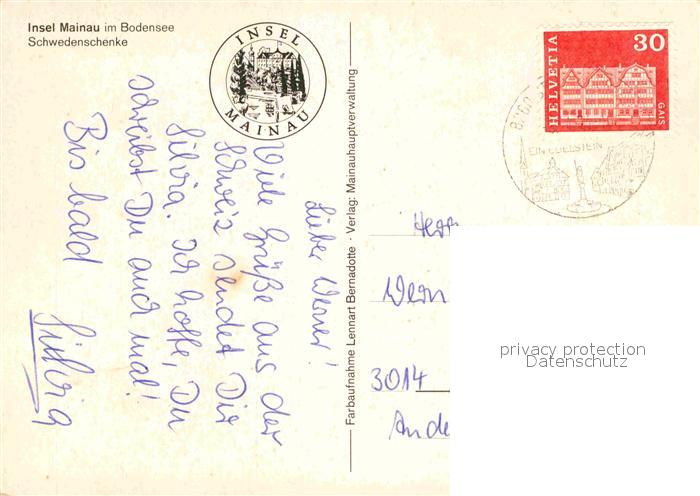 Insel Mainau im Bodensee
Schwedenschenke
INSEL
MAINAU
Lieber Werner!
Viele Grüße aus der
Schweiz sendet Dir
Silvia. Ich hoffe, Du
schreibst Du auch mal!
Bis bald
Silvia
Farbaufnahme Lennart Bernadotte · Verlag: Mainauhauptverwaltung
HELVETIA
30
GAIS
EIN EDELSTEIN
Herr
Wern
3014
Ande
privacy protection
Datenschutz